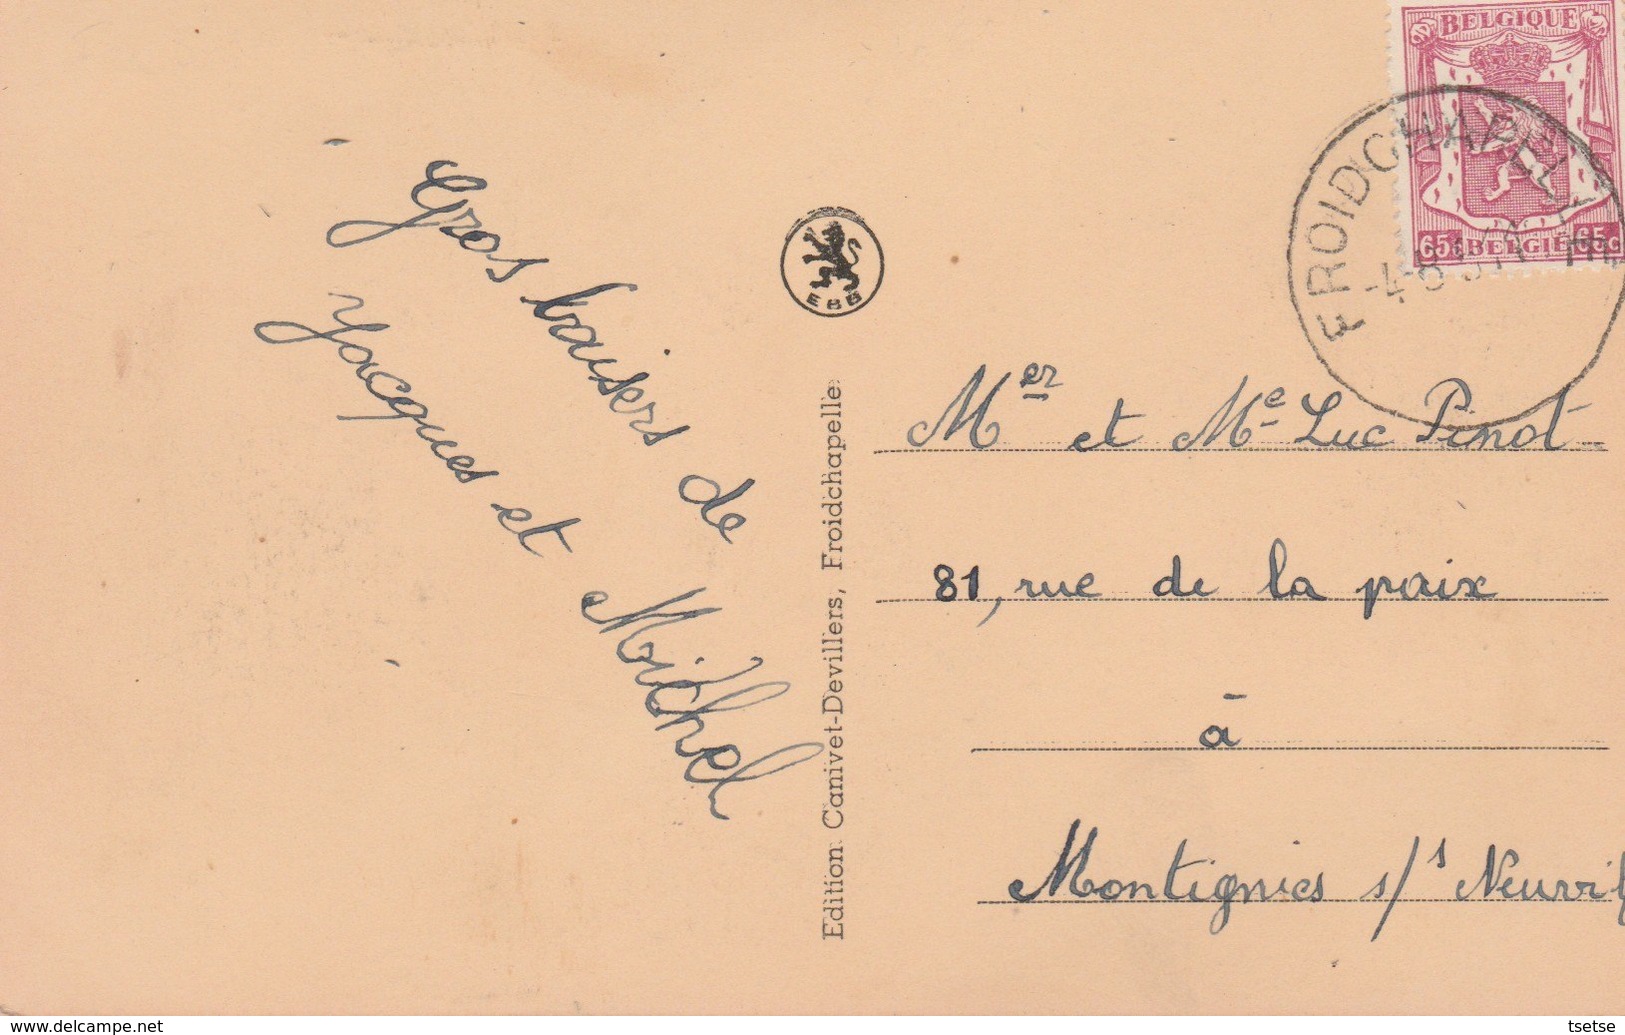 Gros baisers de
Jacques et Michel
EBB
Edition Canivet-Devillers, Froidchapelle
BELGIQUE
65c BELGIË 65c
FROIDCHAPELLE
Mer et Me Luc Pinot
81, rue de la paix
à
Montignies s/s Neuvil
www.delcampe.net
tsetse